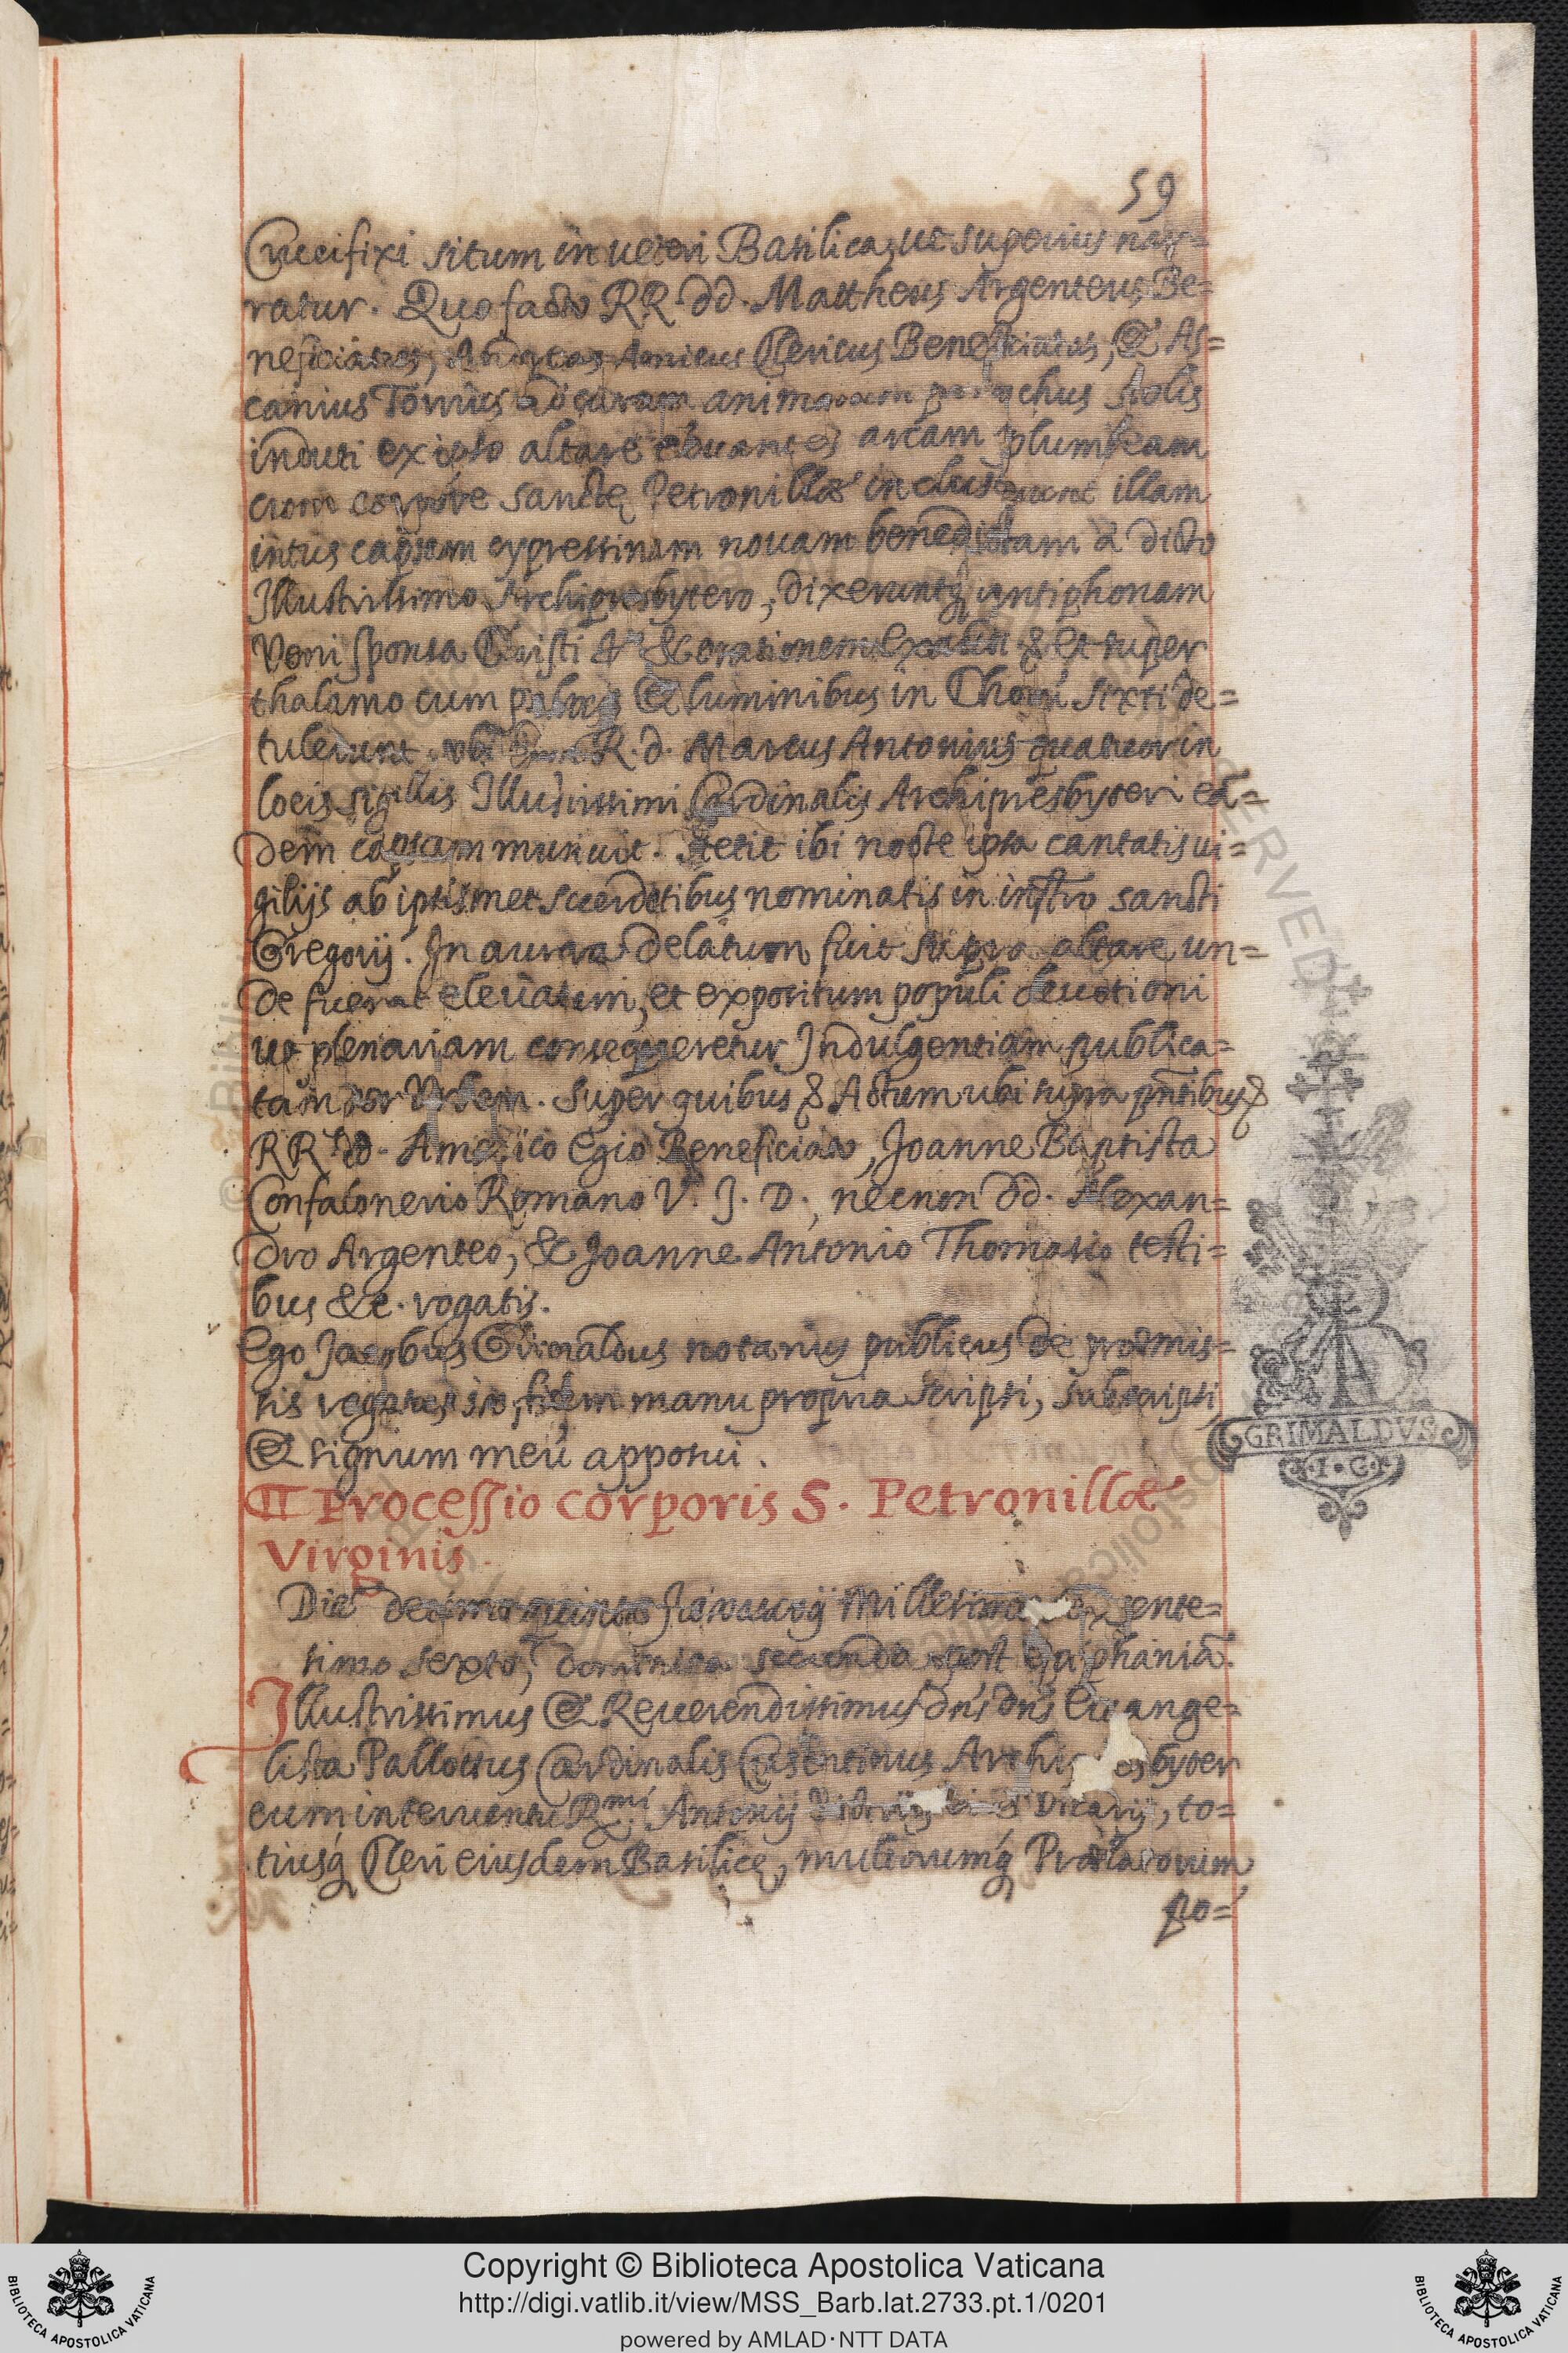 59
Crucifixi situm in ueteri Basilica, ut superius nar=
ratur. Quo facto RR. dd. Mattheus Argenteus Be=
neficiatus, Amicus Clericus Beneficiatus, & As=
canius Torrius ad curam animarum parochus stolis
induti ex ipso altare arcam plumbeam
cum corpore sanctę Petronillæ illam
intus capsam cypressinam nouam benedictam à dicto
Illustrissimo Archipresbytero, dixeruntq̃ antiphonam
Veni sponsa Christi & orationem Exaudi & et super
thalamo cum & luminibus in Choru Sixti de=
tulerunt, R. d. Marcus Antonius quatuor in
locis sigillis Illustrissimi Cardinalis Archipresbyteri eã=
dem capsam muniuit. Stetit ibi nocte ipsa cantatis ui=
gilijs ab ipsis met sacerdotibus nominatis in instro sancti
Gregorij. In aurora delatum fuit supra altare un=
de fuerat eleuatum, et expositum populi deuotioni
ut plenariam consequeretur Indulgentiam publica=
tam per Vrbem. Super quibus & Actum ubi supra pñtibus &
RR. dd. Americo Egio Beneficiato, Joanne Baptista
Confalonerio Romano V. J. D., necnon dd. Alexan=
dro Argenteo, & Joanne Antonio Thomasio testi=
bus &c. rogatis.
Ego Jacobus Grimaldus notarius publicus de præmis=
sis rogatus in fidem manu propria scripsi, subscripsi,
& signum meũ apposui.
GRIMALDVS
I.G.
¶ Processio corporis S. Petronillæ
Virginis.
Die decimaquinta Januarij Millesimo sexcente=
simo sexto, dominica secunda post Epiphaniã.
Illustrissimus & Reuerendissimus dñs dñs Euange=
lista Pallottus Cardinalis Cusentinus Archipresbyter
cum interuentu Rmi Antonij Vicarij, to=
tiusq́ Cleri eiusdem Basilicę, multorumq́ Prælatorum,
po=
Copyright © Biblioteca Apostolica Vaticana
http://digi.vatlib.it/view/MSS_Barb.lat.2733.pt.1/0201
powered by AMLAD·NTT DATA
BIBLIOTECA APOSTOLICA VATICANA
BIBLIOTECA APOSTOLICA VATICANA